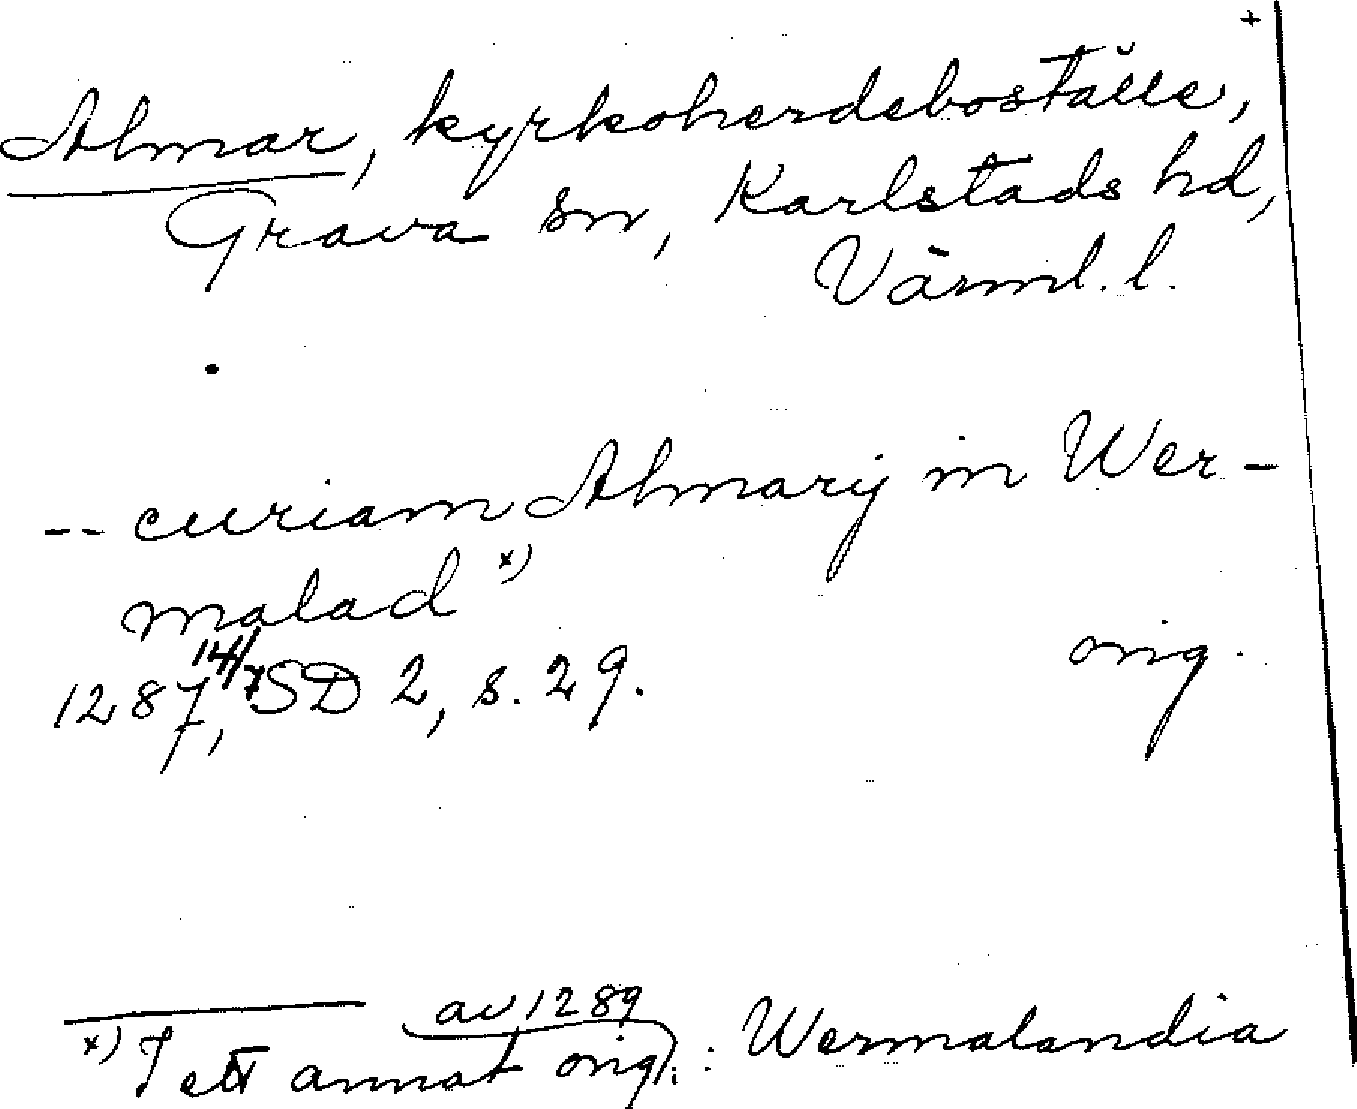 +
Almar, kyrkoherdeboställe,
Grava sn, Karlstads hd,
Värml. l.
-- curiam Almarij in Wer-
malad x)
1287 14/7, SD 2, s. 29. orig.
x) I ett annat orig. av 1289: Wermalandia